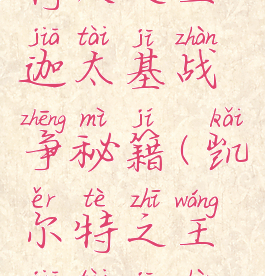 jiā tài jī zhàn
迦太基战
zhēng mì jí kǎi
争秘籍(凯
ěr tè zhī wáng
尔特之王